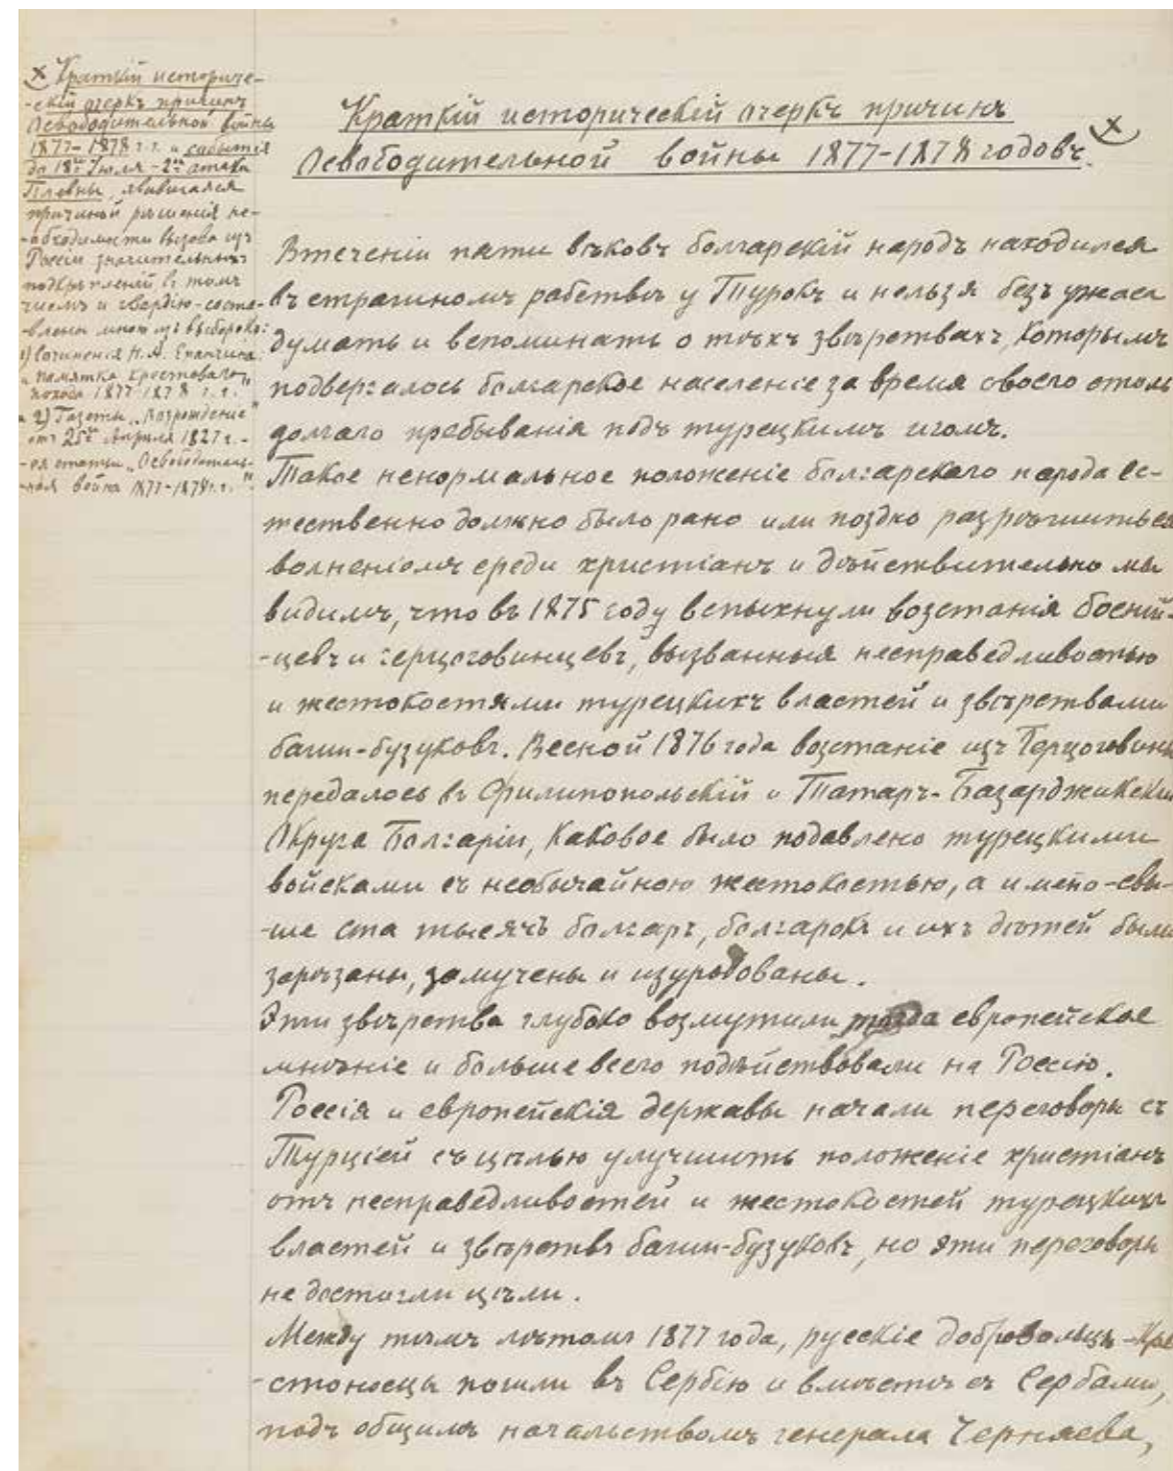 х Краткій историче-
-скій очеркъ причинъ
Освободительной войны
1877-1878 г.г. и событія
до 18го Іюля - 2ой атаки
Плевны, явившаяся
причиной рѣшенія не-
-обходимости вызова изъ
Россіи значительныхъ
подкрѣпленій въ томъ
числѣ и гвардію - соста-
-влены мною изъ выборокъ:
1) Сочиненія Н. А. Епанчина
"Памятка крестоваго
похода 1877-1878 г.г."
и 2) Газеты "Возрожденіе"
отъ 25го Апрѣля 1927 г. -
-ея статьи "Освободитель-
-ная война 1877-1878 г.г."
Краткій историческій очеркъ причинъ
Освободительной войны 1877-1878 годовъ. х
Втеченіи пяти вѣковъ болгарскій народъ находился
въ страшномъ рабствѣ у Турокъ и нельзя безъ ужаса
думать и вспоминать о тѣхъ звѣрствахъ, которымъ
подвергалось болгарское населеніе за время своего столь
долгаго пребыванія подъ турецкимъ игомъ.
Такое ненормальное положеніе болгарскаго народа ес-
тественно должно было рано или поздно разрѣшиться
волненіемъ среди христіанъ и дѣйствительно мы
видимъ, что въ 1875 году вспыхнули возстанія босній-
-цевъ и герцоговинцевъ, вызванныя несправедливостью
и жестокостями турецкихъ властей и звѣрствами
баши-бузуковъ. Весной 1876 года возстаніе изъ Герцоговины
передалось въ Филипопольскій и Татаръ-Базарджикскій
Округа Болгаріи, каковое было подавлено турецкими
войсками съ необычайною жестокостью, а имено - свы-
-ше ста тысячъ болгаръ, болгарокъ и ихъ дѣтей были
зарѣзаны, замучены и изуродованы.
Эти звѣрства глубоко возмутили тогда европейское
мнѣніе и больше всего подѣйствовали на Россію.
Россія и европейскія державы начали переговоры съ
Турціей съ цѣлью улучшить положеніе христіанъ
отъ несправедливостей и жестокостей турецкихъ
властей и звѣрствъ баши-бузуковъ, но эти переговоры
не достигли цѣли.
Между тѣмъ лѣтомъ 1877 года, русскіе добровольцы - кре
-стоносцы пошли въ Сербію и вмѣстѣ съ Сербами,
подъ общимъ начальствомъ генерала Черняева,